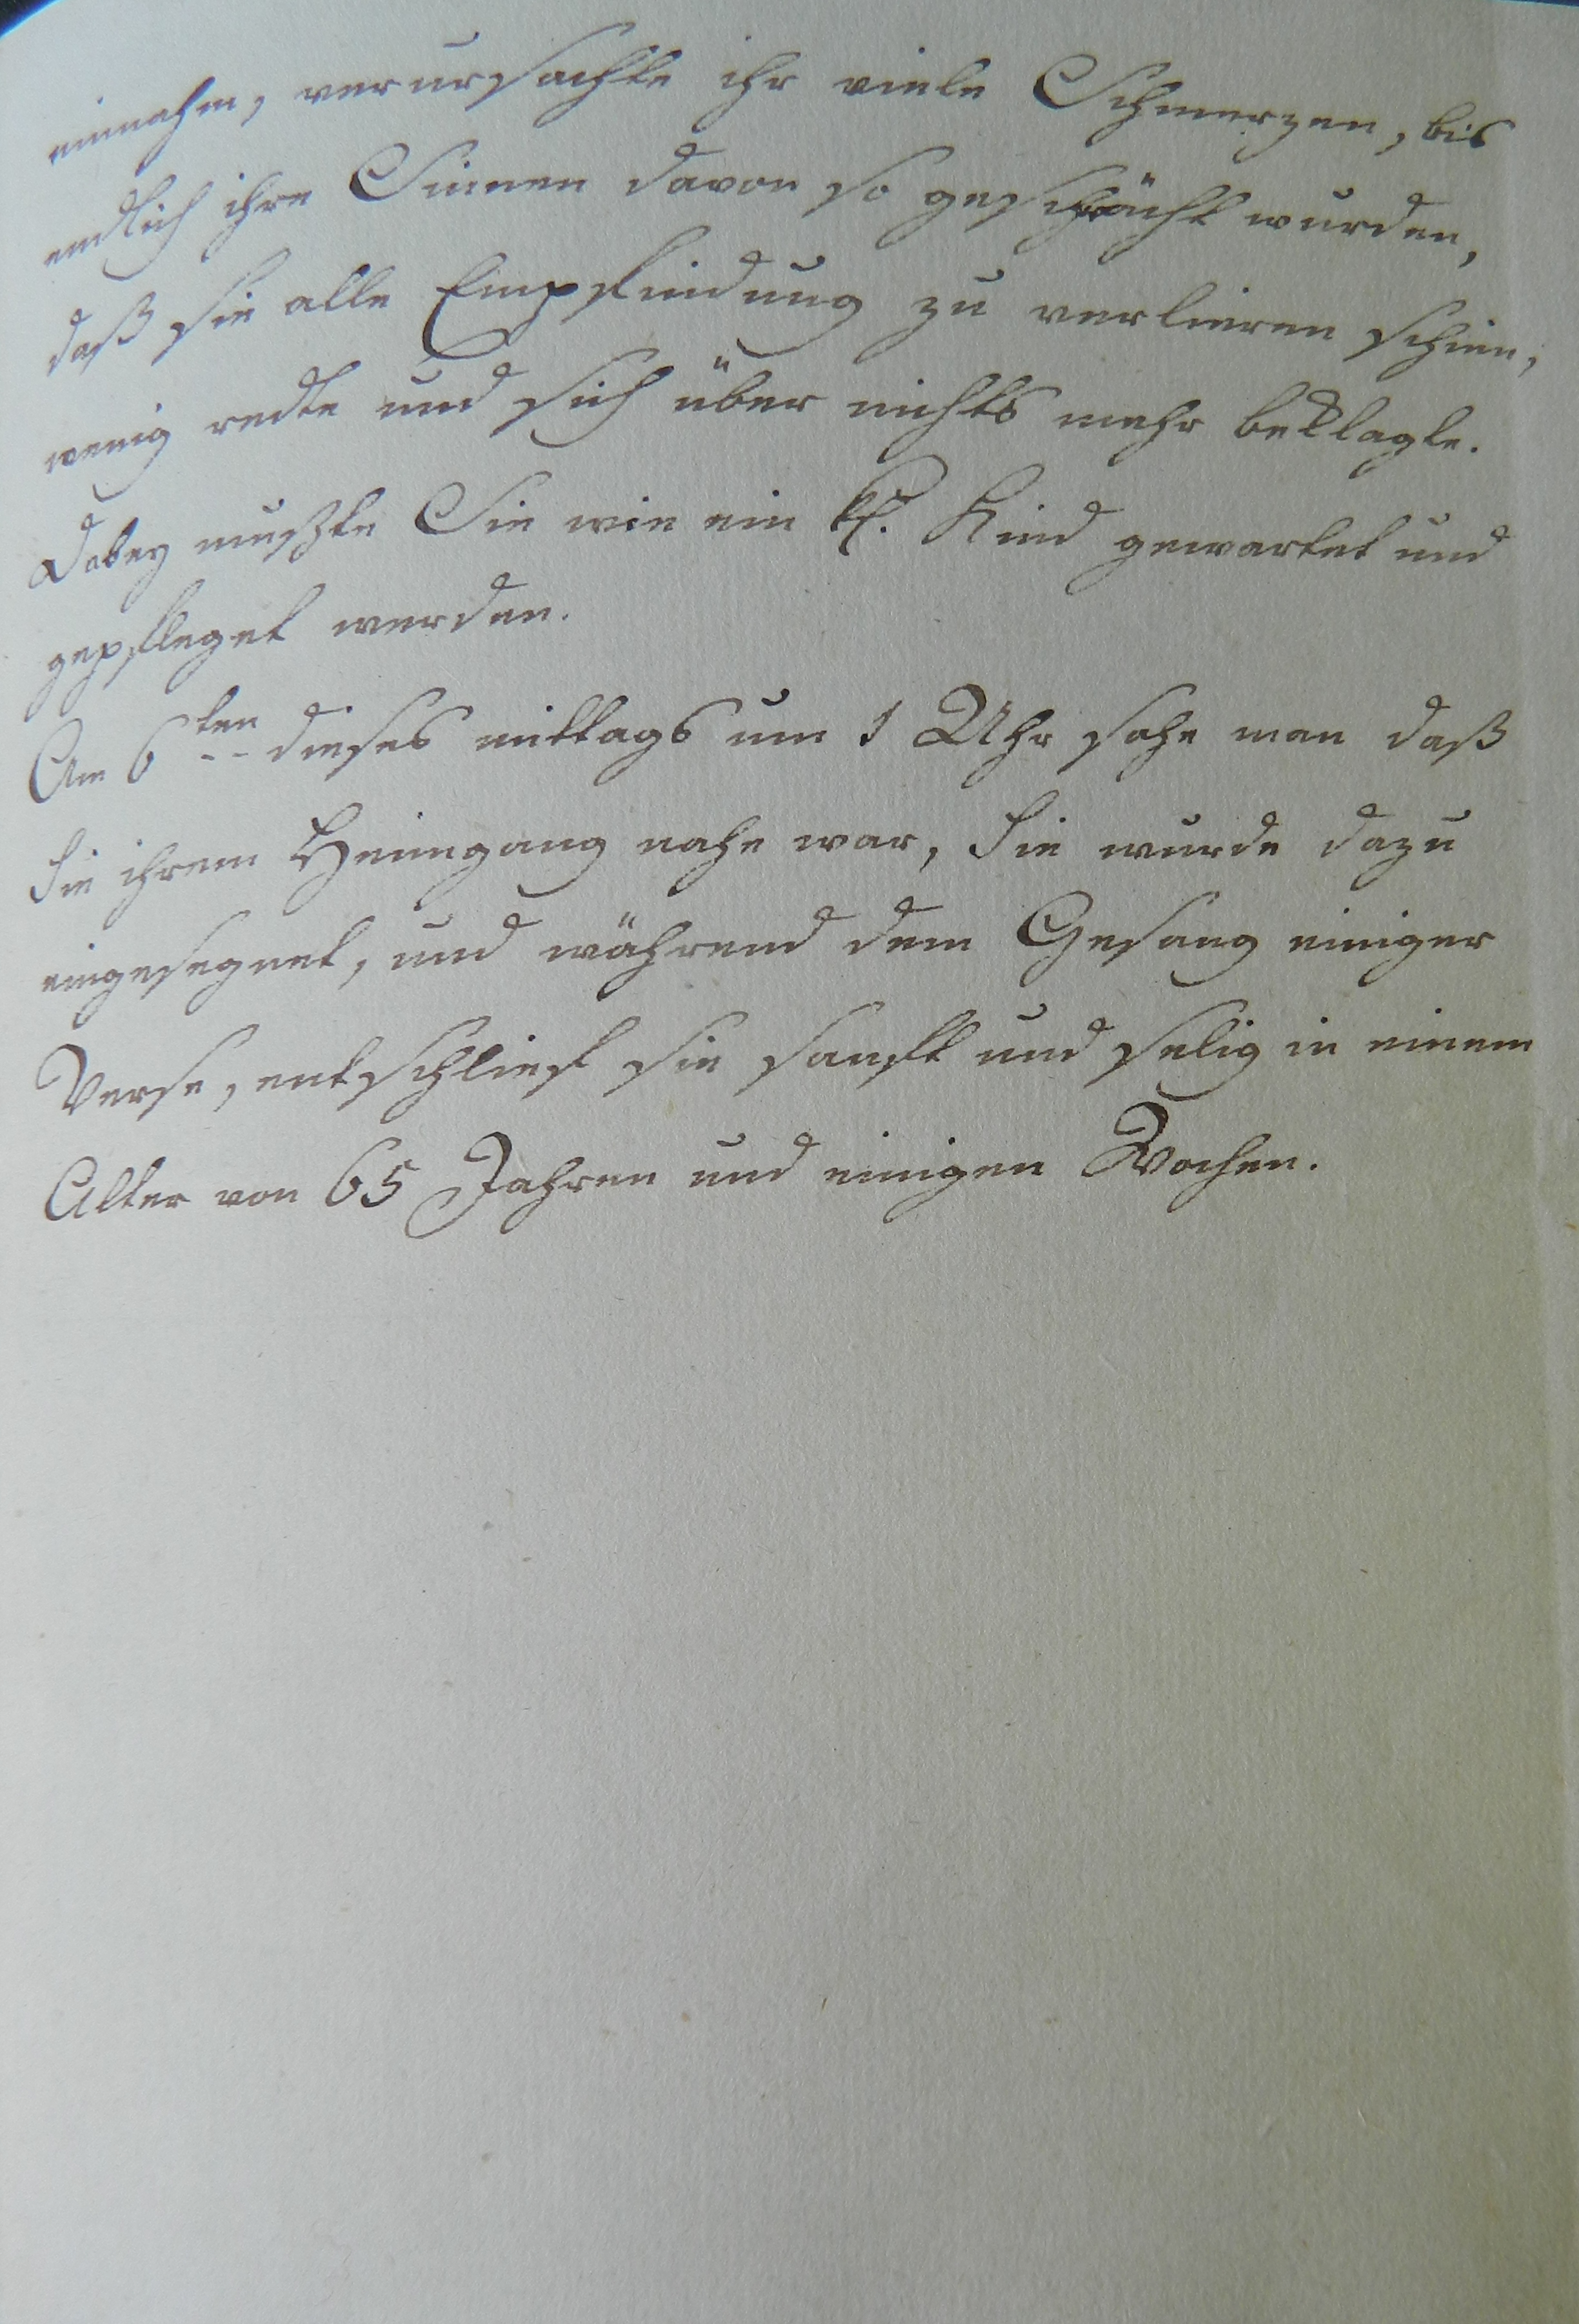 einnahm, verursachte ihr viele Schmerzen, bis
endlich ihre Sinnen davon so geschwächt wurden,
daß sie alle Empfindung zu verlieren schien,
wenig redte und sich über nichts mehr beklagte.
Dabey muszte Sie wie ein kl. Kind gewartet und
gepfleget werden.
Am 6ten dieses mittags um 1 Uhr sahe man daß
Sie ihrem Heimgang nahe war, Sie wurde dazu
eingesegnet, und während dem Gesang einiger
Verse, entschlief sie sanft und selig in einem
Alter von 65 Jahren und einigen Wochen.